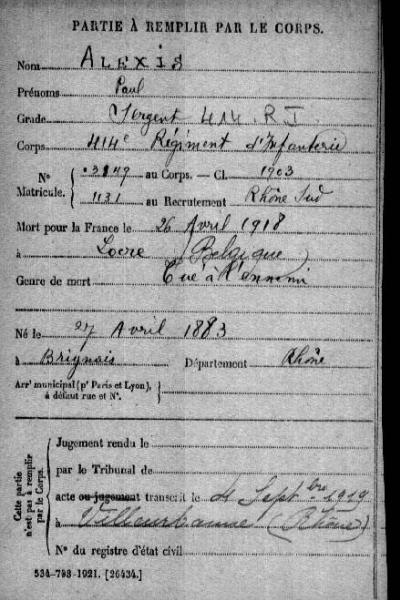 PARTIE À REMPLIR PAR LE CORPS.
Nom ALEXIS
Prénoms Paul
Grade Sergent 414. R I.
Corps 414e Régiment d'Infanterie
N° Matricule. 3149 au Corps. — Cl. 1903
1131 au Recrutement Rhône Sud
Mort pour la France le 26 Avril 1918
à Locre (Belgique)
Genre de mort Tué à l'ennemi
Né le 27 Avril 1883
à Brignais Département Rhône
Arrt municipal (pr Paris et Lyon), à défaut rue et N°.
Cette partie n'est pas à remplir par le Corps.
Jugement rendu le
par le Tribunal de
acte ou jugement transcrit le 4 Septbre 1919
à Villeurbanne (Rhône)
N° du registre d'état civil
534-708-1921. [26434.]